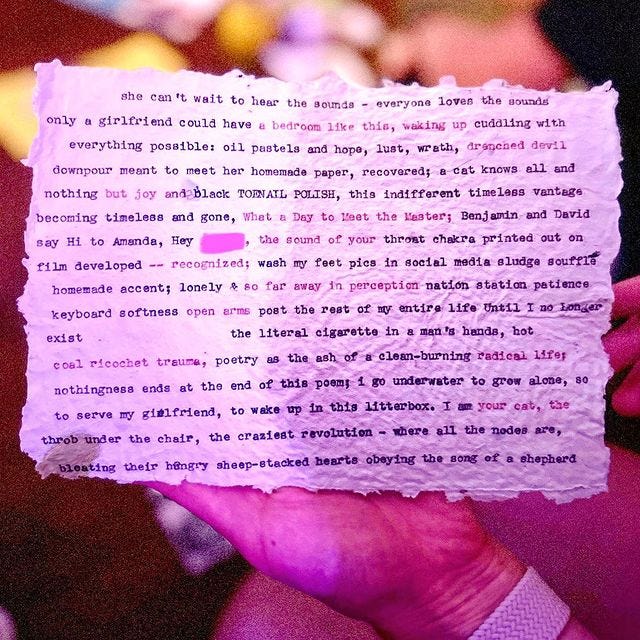 she can't wait to hear the sounds - everyone loves the sounds
only a girlfriend could have a bedroom like this, waking up cuddling with
everything possible: oil pastels and hope, lust, wrath, drenched devil
downpour meant to meet her homemade paper, recovered; a cat knows all and
nothing but joy and black TOENAIL POLISH, this indifferent timeless vantage
becoming timeless and gone, What a Day to Meet the Master; Benjamin and David
say Hi to Amanda, Hey , the sound of your throat chakra printed out on
film developed -- recognized; wash my feet pics in social media sludge soufflé
homemade accent; lonely & so far away in perception nation station patience
keyboard softness open arms post the rest of my entire life Until I no Longer
exist the literal cigarette in a man's hands, hot
coal ricochet trauma, poetry as the ash of a clean-burning radical life;
nothingness ends at the end of this poem; i go underwater to grow alone, so
to serve my girlfriend, to wake up in this litterbox. I am your cat, the
throb under the chair, the craziest revolution - where all the nodes are,
bleating their hungry sheep-stacked hearts obeying the song of a shepherd